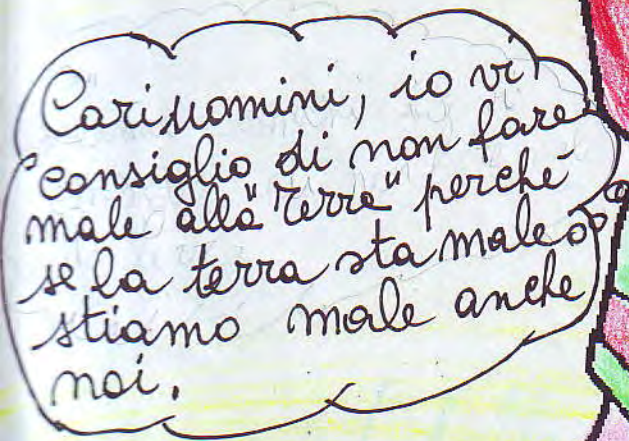 Cari uomini, io vi
consiglio di non fare
male alla "Terra" perché
se la terra sta male
stiamo male anche
noi.